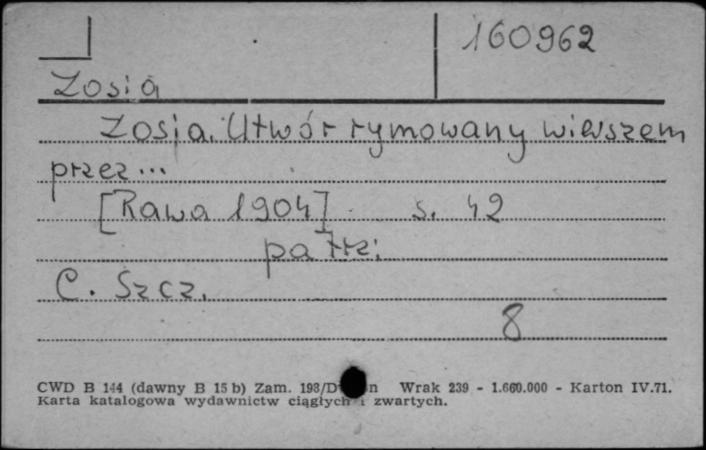 160962
Zosia
Zosia. Utwór rymowany wierszem
przez...
[Rawa 1904] s. 42
patrz:
C. Szcz.
8
CWD B 144 (dawny B 15 b) Zam. 198/D n Wrak 239 - 1.660.000 - Karton IV.71.
Karta katalogowa wydawnictw ciągłych i zwartych.